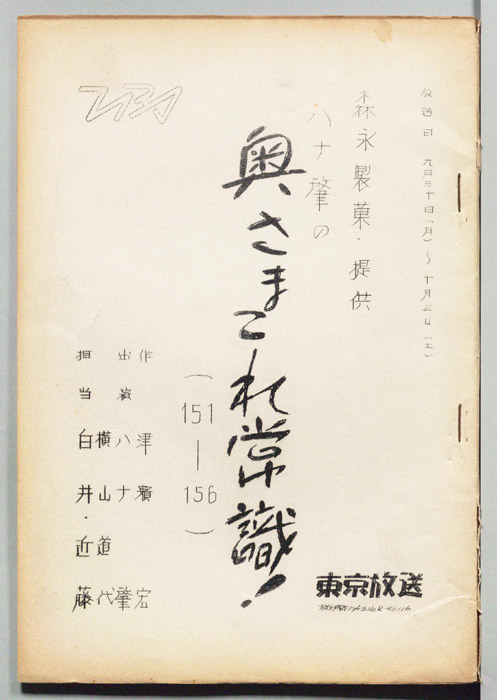 放送日 九月三十日(月)〜十月五日(土)
森永製菓・提供
ハナ肇の
奥さまこれ常識!
(151—156)
作 津瀬宏
出演 ハナ肇
横山道代
担当 白井・近藤
東京放送